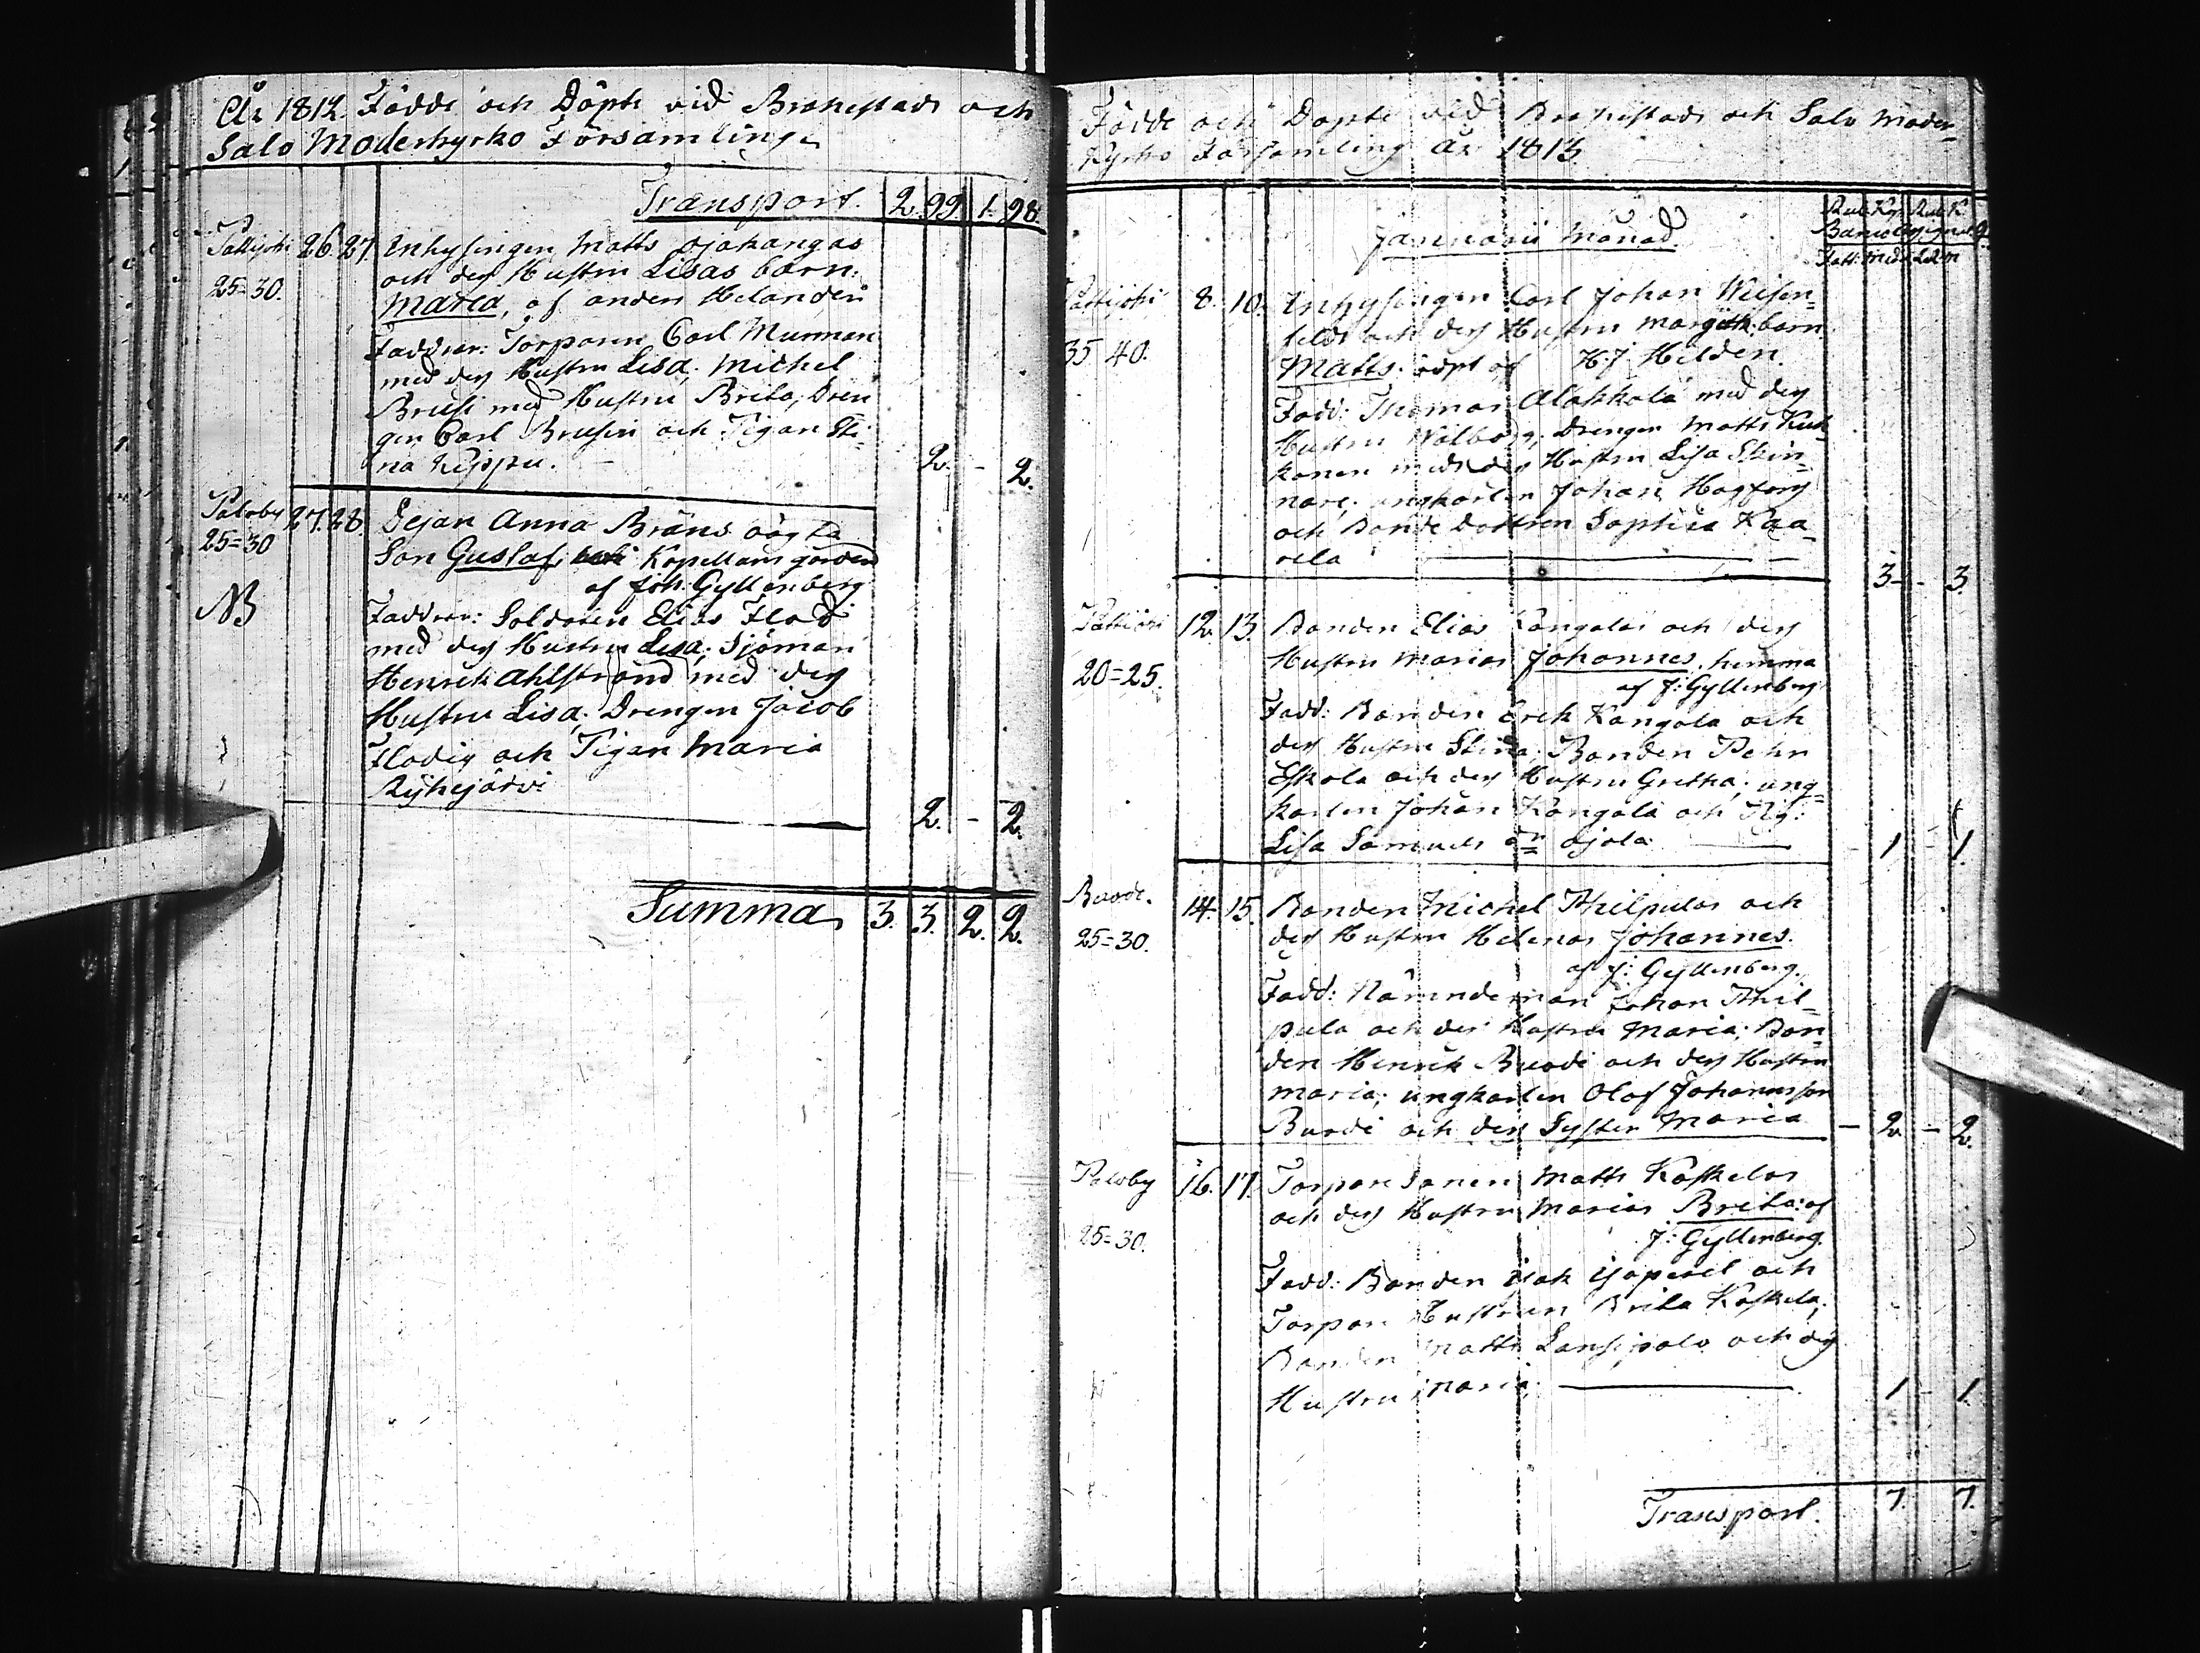 År 1812. Födde och Döpte vid Brahestads och
Salo Moderkyrko Församlingar
Transport. 2. 99. 1. 98.
Pattijoki 26. 27. Inhysingen Matts Ojakangas
och dess Hustru Lisas barn:
25=30. Maria, af anden Helander
Faddrar: Torparen Carl Murman
med dess Hustru Lisa; Michel
Brusi med Hustru Brita, Dren
gen Carl Brusin och Pigan Sti-
na Kippu. 2. - 2.
Paloby 27. 28. Pejan Anna Bräns oägta
25=30 Son Gustaf, Kapellans gården
af Joh: Gyllenberg
NB Faddrar: Soldaten Elias Flod
med dess Hustru Lisa; Sjöman
Henrik Ahlstrand med dess
Hustru Lisa; Drengen Jacob
Flodig och Pigan Maria
Ryhejärvi
2. - 2.
Summa 3. 3. 2. 2.
Födde och Döpte vid Brahestads och Salo Moder-
Kyrko Församling år 1813
Januarii Månad.
Pattijoki 8. 10. Inhysingen Carl Johan Weisen-
feldt och dess Hustru Margeth: barn
35 40. Matts. döpt af H. J. Helden.
Fadd: Thomas Alakkola med dess
Hustru Walborg; Drengen Matts Kuk-
konen med dess Hustru Lisa Skin-
nare; ungkarlen Johan Hagfors
och Bonde Dottren Sophia Kaa-
rela 3 - - 3.
Pattijoki 12. 13. Bonden Elias Kangalas och dess
Hustru Marias Johannes. hemma
20=25. af J: Gyllenberg
Fadd: Bonden Erik Kangala och
dess Hustru Stina; Bonden Pehr
Eskola och dess Hustru Gretha; ung-
karlen Johan Kangala och Pig:
Lisa Samuels dr Ojala 1 - 1.
14. 15. Bonden Michel Philpulas och
25=30. dess Hustru Helenas Johannes.
af J: Gyllenberg.
Fadd: Nämndeman Johan Phil-
pula och dess Hustru Maria; Bon-
den Henrik Buodi och dess Hustru
Maria; ungkarlen Olof Johansson
Buodi och dess Syster Maria - 2. - 2.
Paloby 16. 17. Torpare Sonen Matts Koskelas
och dess Hustru Marias Brita: af
25=30. J: Gyllenberg.
Fadd: Bonden Isak och
Torpare Hustrun Brita Koskela;
Bonden Matts Länsipalo och dess
Hustru Maria. 1 - 1.
Transport. 7. 7.